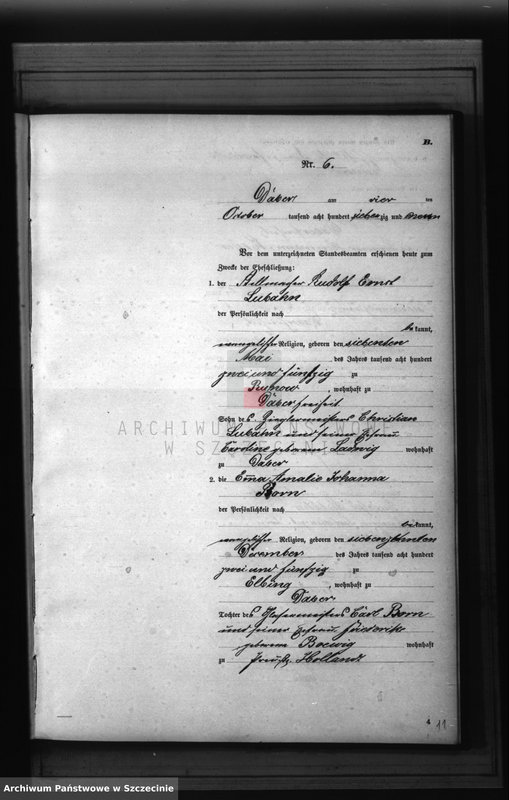 B.
Nr. 6.
Daber am vier ten
October tausend acht hundert sieben zig und neun
Vor dem unterzeichneten Standesbeamten erschienen heute zum
Zwecke der Eheschließung:
1. der Stellmacher Rudolf Ernst
Lubahn
der Persönlichkeit nach
be kannt,
evangelischer Religion, geboren den siebenten
Mai des Jahres tausend acht hundert
zwei und fünfzig zu
, wohnhaft zu
Daber Freiheit
Sohn des Christian
Lubahn und seiner Ehefrau
Caroline geborenen Ladwig wohnhaft
zu Daber
2. die Emma Amalie Johanna
Born
der Persönlichkeit nach
be kannt,
evangelischer Religion, geboren den siebenzehnten
December des Jahres tausend acht hundert
zwei und fünfzig zu
Elbing, wohnhaft zu
Daber
Tochter des Glasermeisters Carl Born
und seiner Ehefrau
geborenen wohnhaft
zu Preuß. Holland.
4
11
ARCHIWUM PAŃSTWOWE
W SZCZECINIE
Archiwum Państwowe w Szczecinie